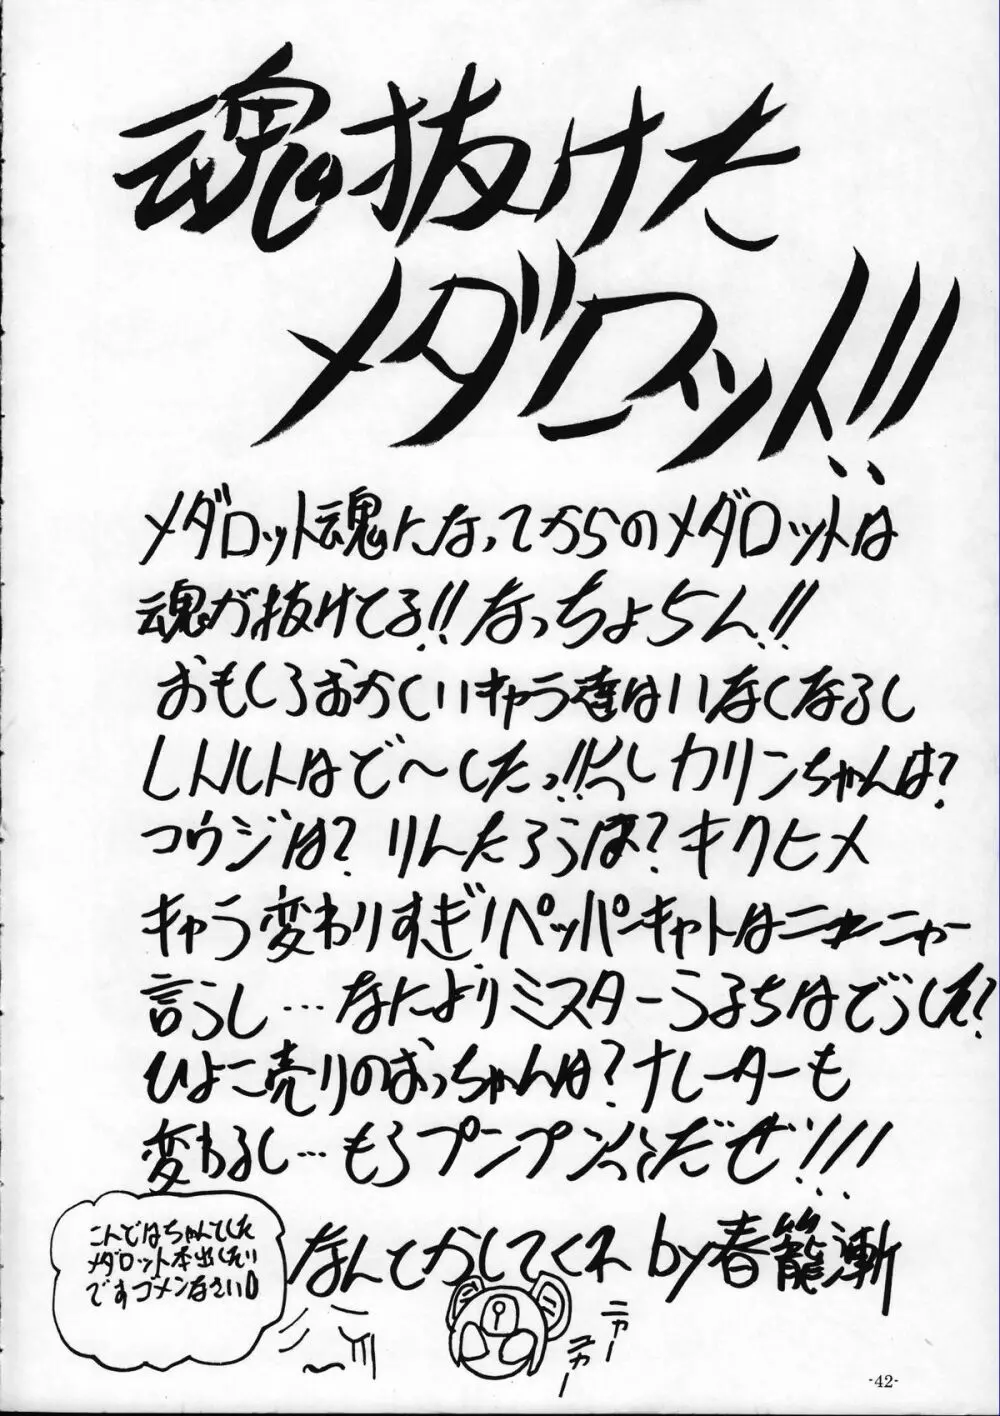 魂抜けた
メダロット!!
メダロット魂になってからのメダロットは
魂が抜けてる!!なっちょらん!!
おもしろおかしいキャラ達はいなくなるし
シトルトはど〜したっ!! カリンちゃんは?
コウジは? りんたろうは? キクヒメ
キャラ変わりすぎ! ペッパーキャットはニャーニャー
言うし…なによりミスターうるちはどうした?
ひよこ売りのおっちゃんは? ナレーターも
変わるし…もうプンプンだぜ!!!
なんとかしてくれ by 春籠漸
こんどはちゃんとした
メダロット本出したい
ですゴメンなさい
ニャー
ニャー
-42-